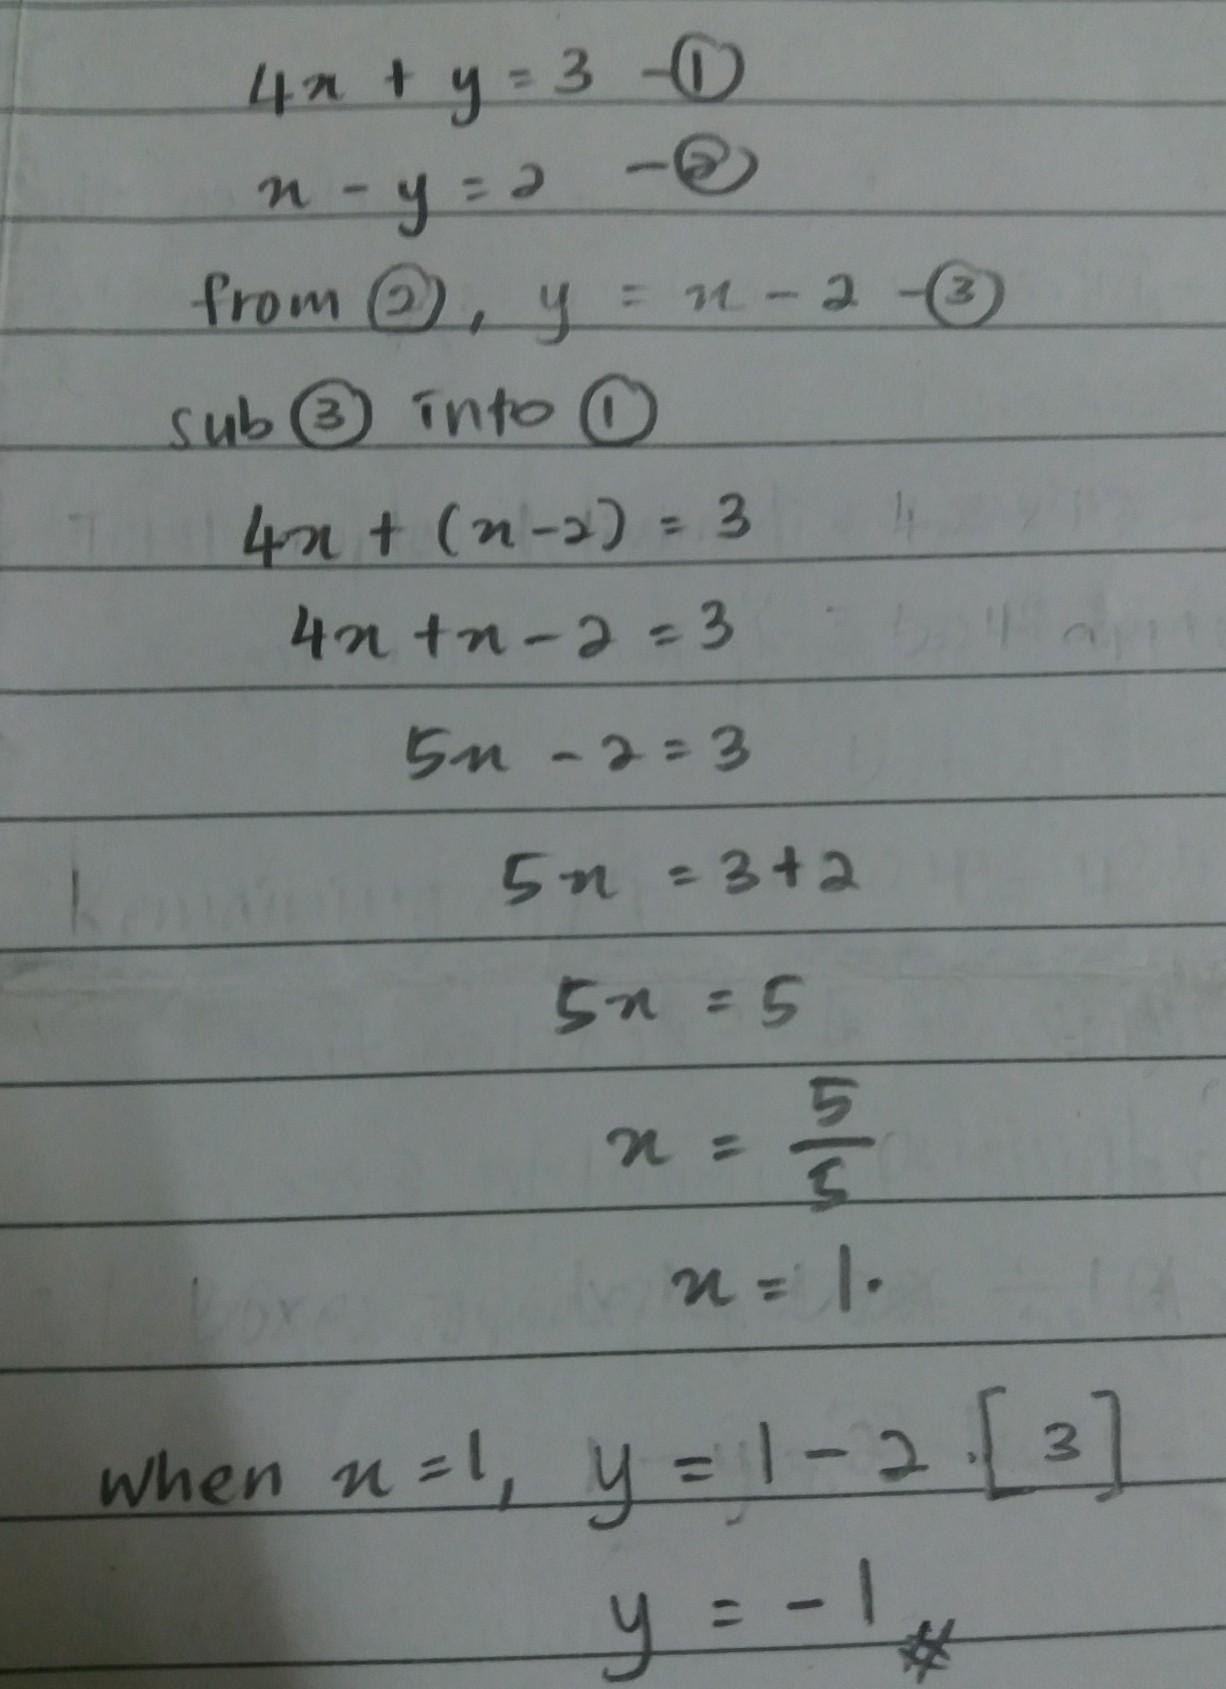 4x + y = 3 - ①
x - y = 2 - ②
from ②, y = x - 2 - ③
sub ③ into ①
4x + (x-2) = 3
4x + x - 2 = 3
5x - 2 = 3
5x = 3 + 2
5x = 5
x = 5/5
x = 1.
when x = 1, y = 1 - 2 . [3]
y = -1 #